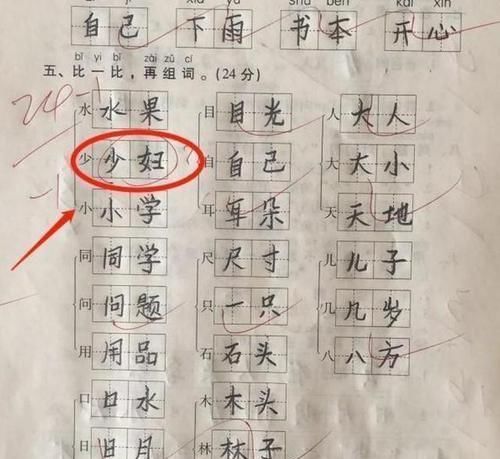 自己 下雨 书本 开心
bǐ yi bǐ zài zǔ cí
五、比一比,再组词。(24分)
24-1
水 水果 目 目光 人 大人
少 少妇 自 自己 大 大小
-1
小 小学 耳 耳朵 天 天地
同 同学 尺 尺寸 儿 儿子
问 问题 只 一只 几 几岁
用 用品 石 石头 八 八方
口 口水 木 木头
日 日月 林 林子